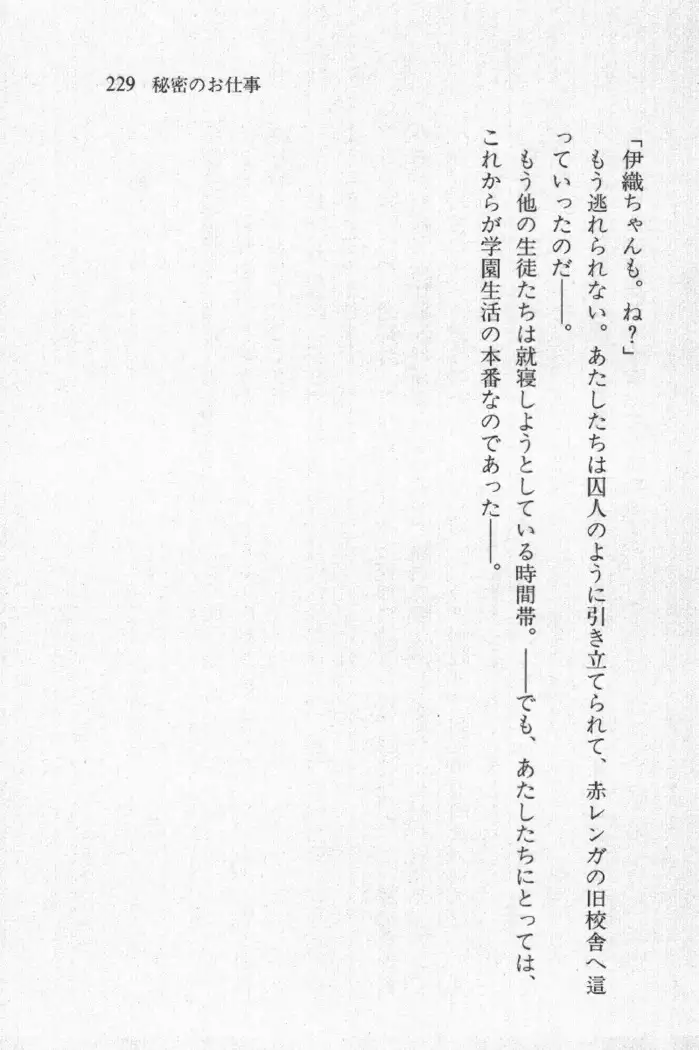 229 秘密のお仕事
「伊織ちゃんも。ね?」
もう逃れられない。あたしたちは囚人のように引き立てられて、赤レンガの旧校舎へ這
っていったのだ――。
もう他の生徒たちは就寝しようとしている時間帯。――でも、あたしたちにとっては、
これからが学園生活の本番なのであった――。